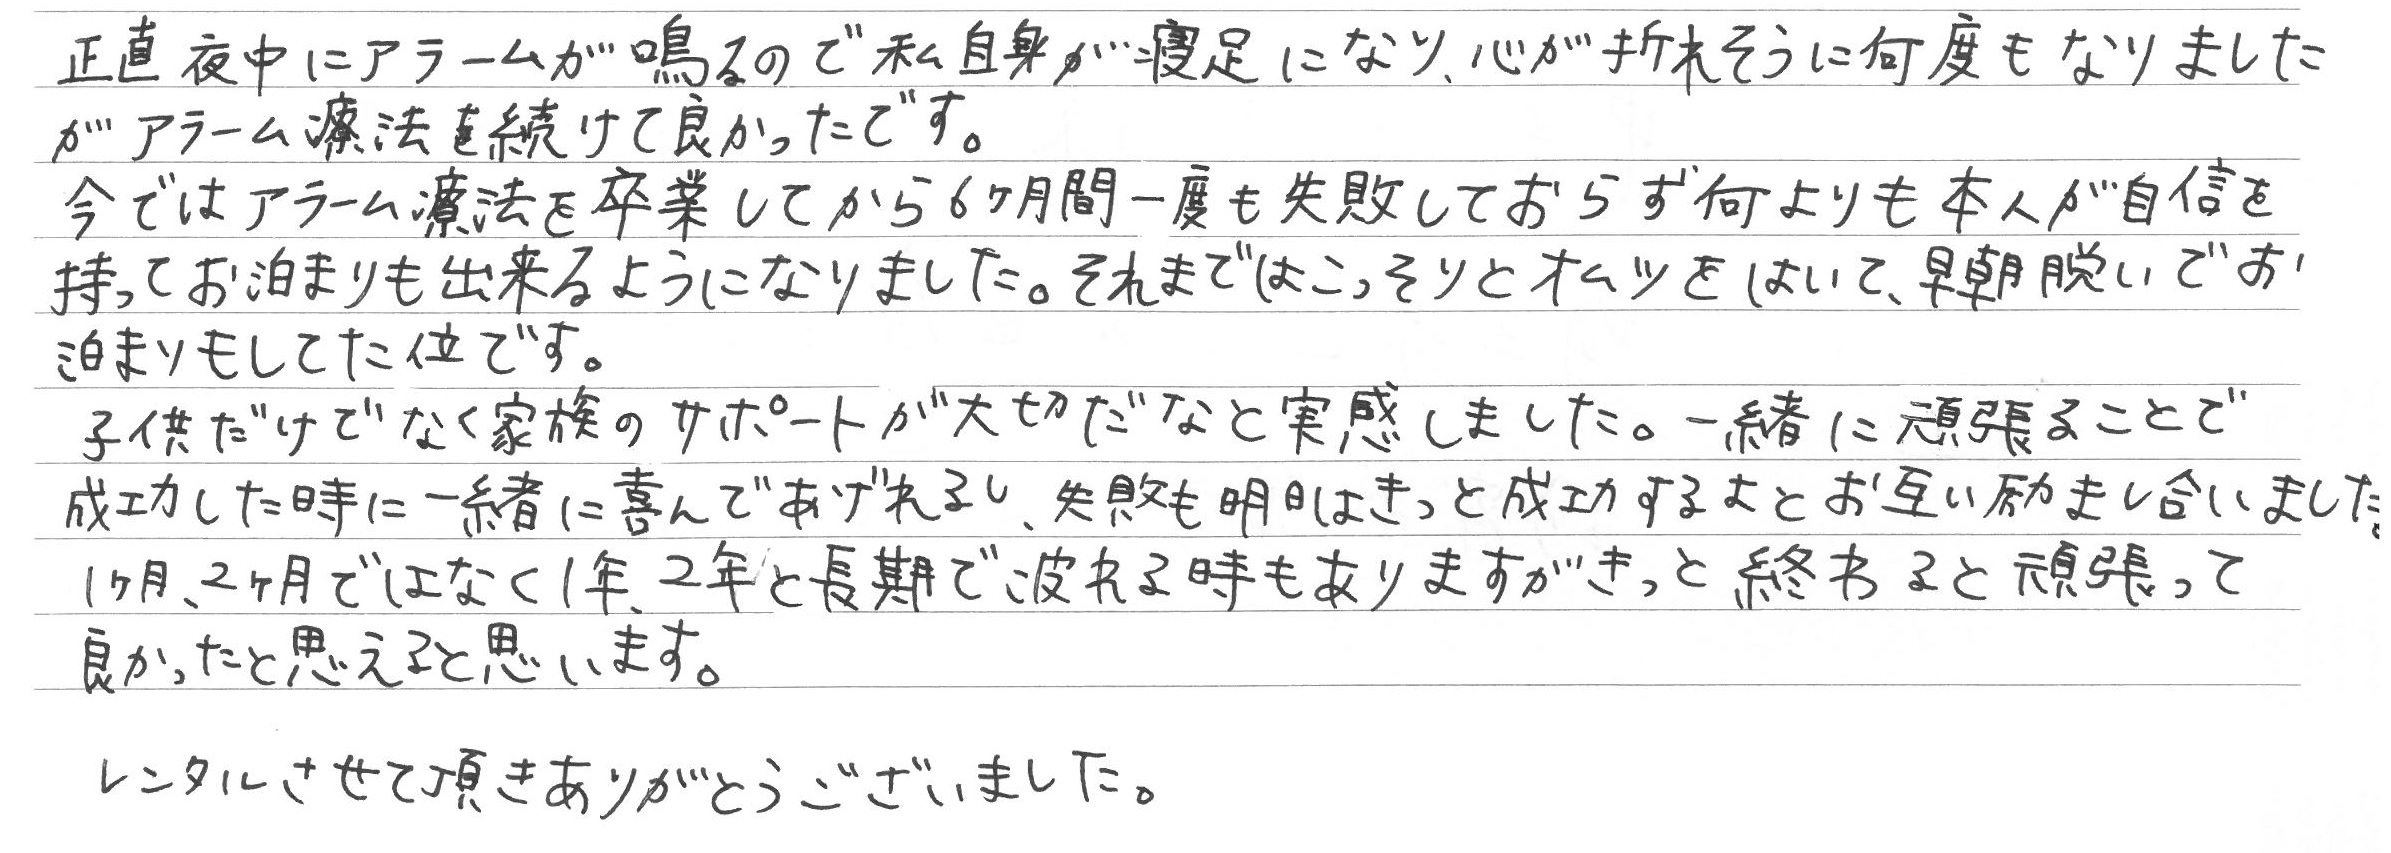 正直夜中にアラームが鳴るので私自身が寝足になり、心が折れそうに何度もなりました
がアラーム療法を続けて良かったです。
今ではアラーム療法を卒業してから6ヶ月間一度も失敗しておらず何よりも本人が自信を
持ってお泊まりも出来るようになりました。それまではこっそりとオムツをはいて、早朝脱いでお
泊まりもしてた位です。
子供だけでなく家族のサポートが大切だなと実感しました。一緒に頑張ることで
成功した時に一緒に喜んであげれるし、失敗も明日はきっと成功するよとお互い励まし合いました。
1ヶ月、2ヶ月ではなく1年、2年と長期で疲れる時もありますがきっと終わると頑張って
良かったと思えると思います。
レンタルさせて頂きありがとうございました。